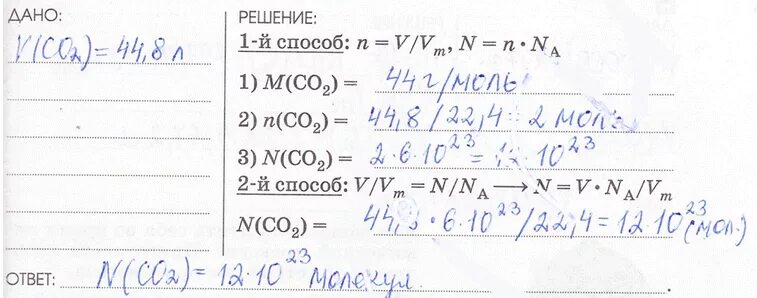 ДАНО:
V(CO₂) = 44,8 л
РЕШЕНИЕ:
1-й способ: n = V/Vₘ, N = n · N_A
1) M(CO₂) = 44 г/моль
2) n(CO₂) = 44,8/22,4 = 2 моль
3) N(CO₂) = 2·6·10²³ = 12·10²³
2-й способ: V/Vₘ = N/N_A ⟶ N = V · N_A/Vₘ
N(CO₂) = 44,8 · 6·10²³/22,4 = 12·10²³ (мол.)
ОТВЕТ: N(CO₂) = 12·10²³ молекул.